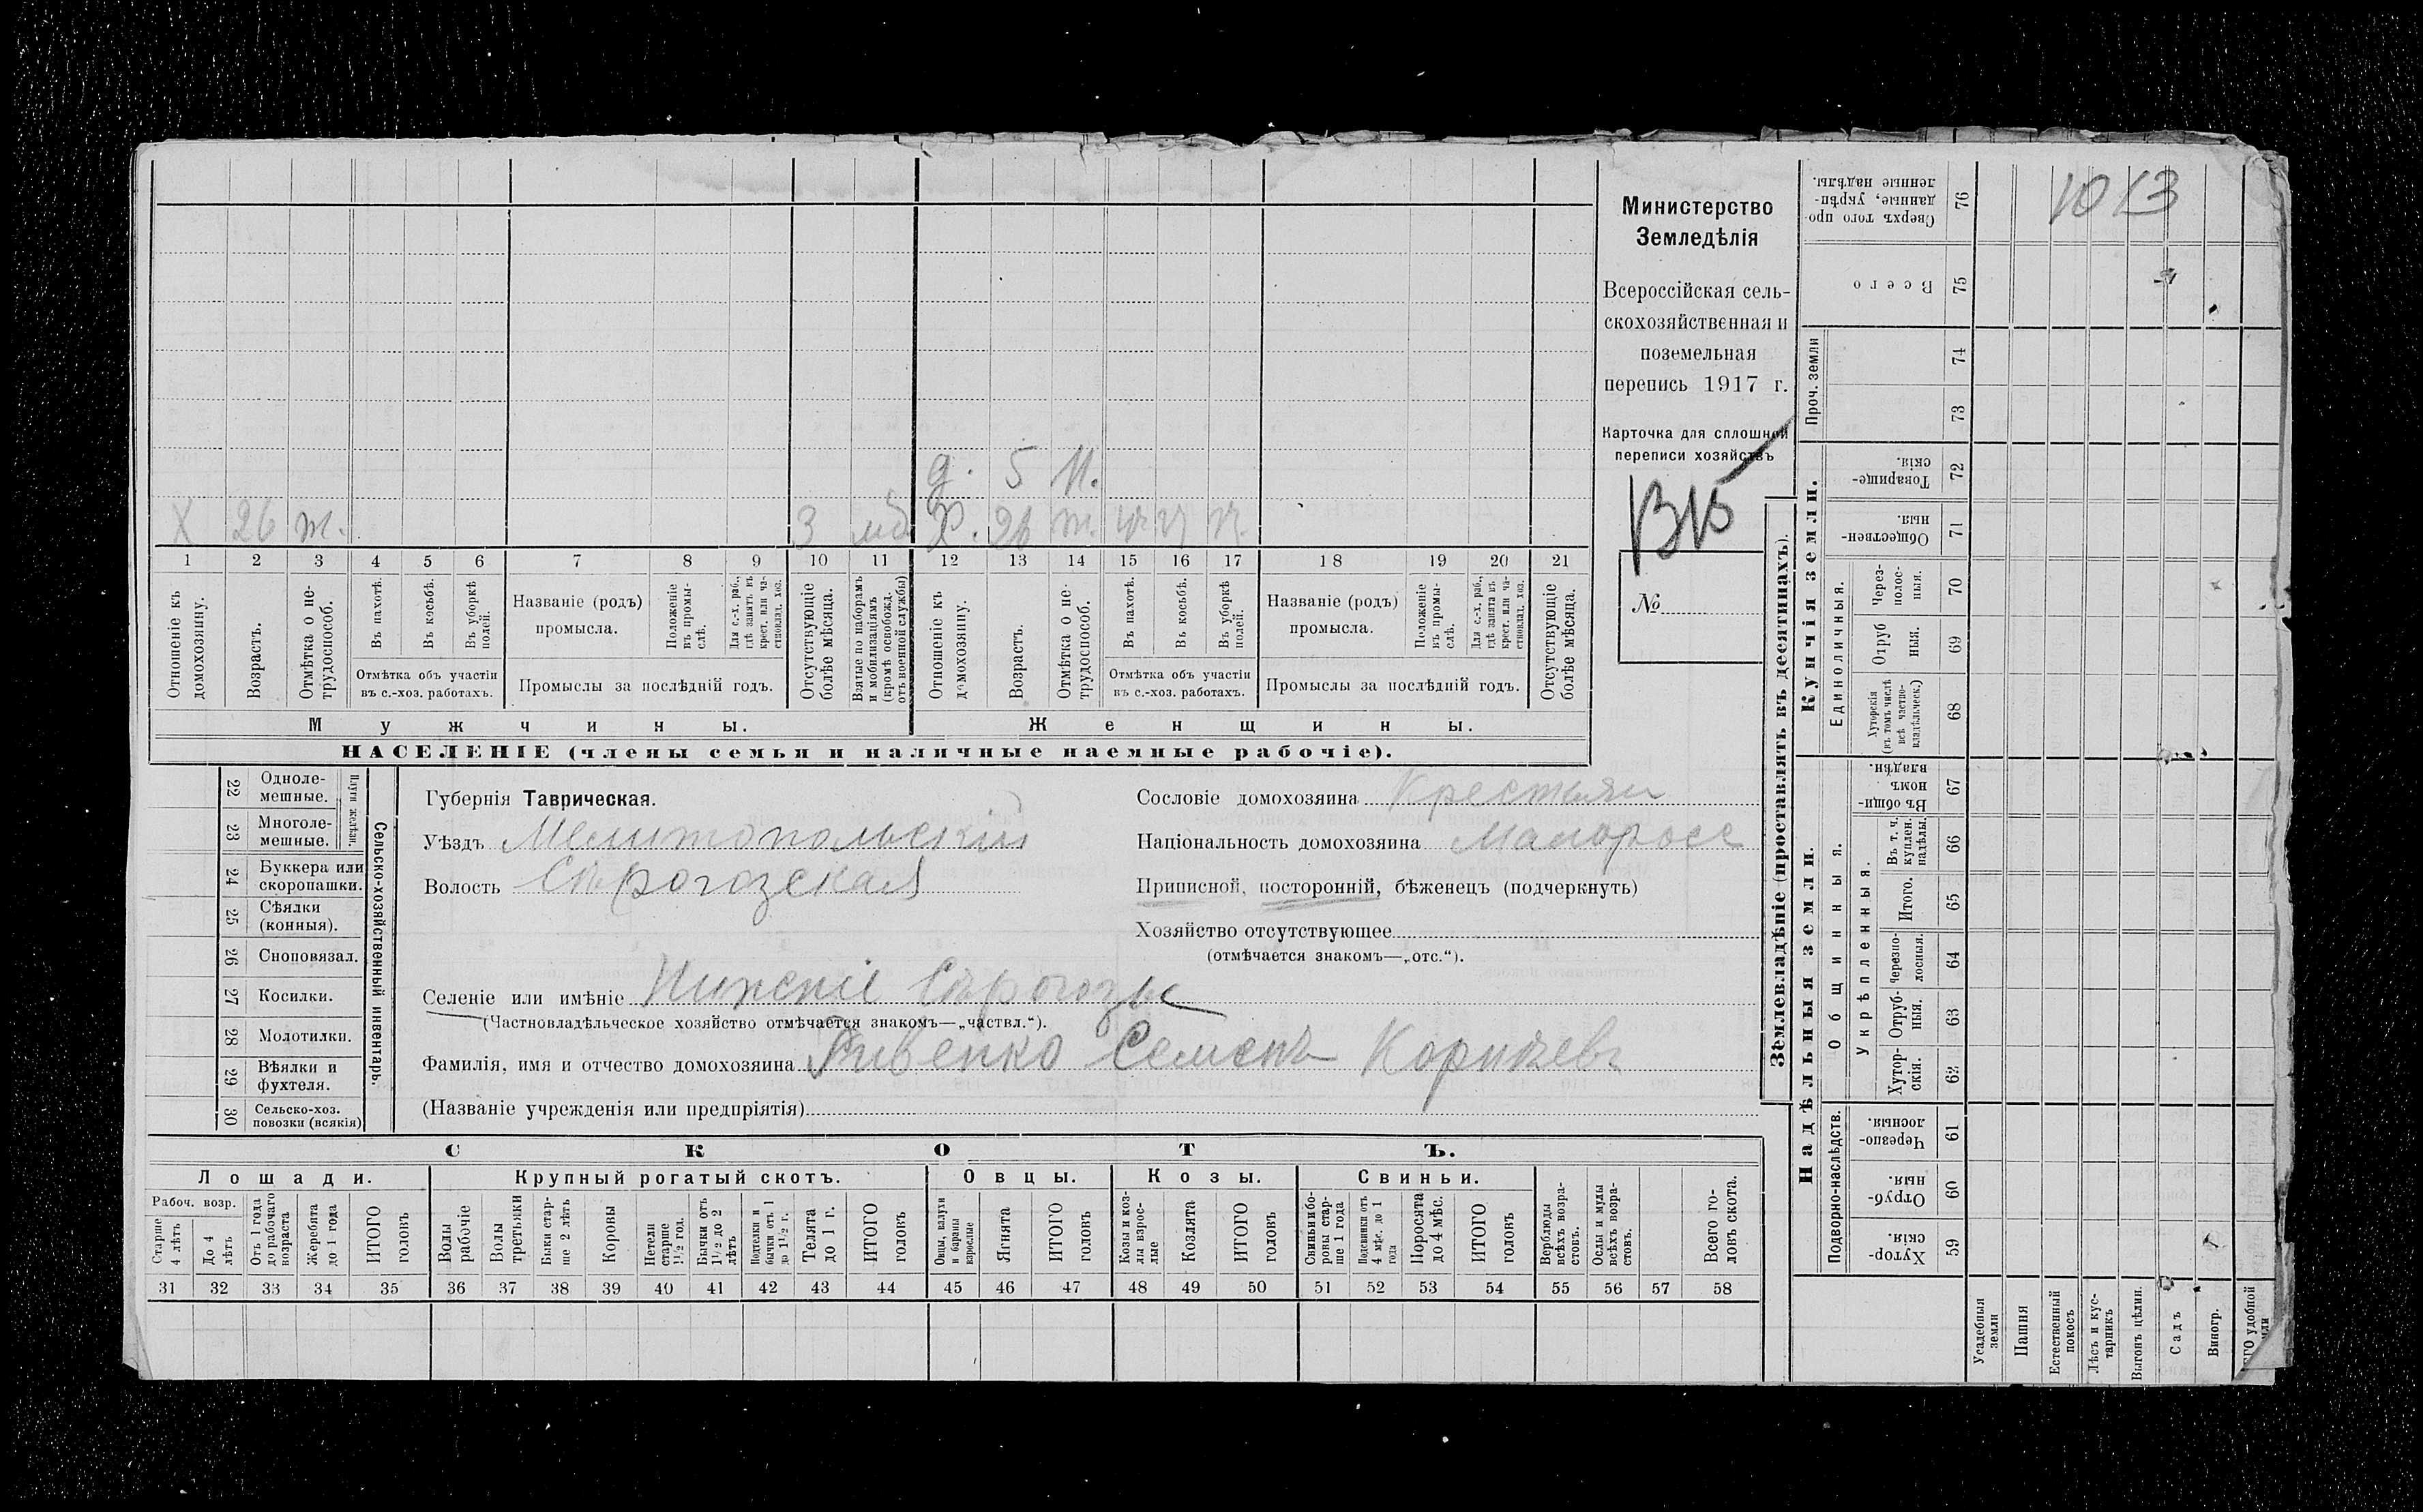 1013
Министерство
Земледѣлія
Всероссійская сель-
скохозяйственная и
поземельная
перепись 1917 г.
Карточка для сплошной
переписи хозяйствъ
№
д. 5 н.
Х 26 т. 3 моб. Х. 26 т. ч ч ч.
1 2 3 4 5 6 7 8 9 10 11 12 13 14 15 16 17 18 19 20 21
Отношеніе къ домохозяину.
Возрастъ.
Отмѣтка о не-трудоспособ.
Въ пахотѣ.
Въ косьбѣ.
Въ уборкѣ полей.
Отмѣтка объ участіи
въ с.-хоз. работахъ.
Названіе (родъ)
промысла.
Положеніе въ промы-слѣ.
Для с.-х. раб., гдѣ занятъ въ крест. или ча-стновлад. хоз.
Промыслы за послѣдній годъ.
Отсутствующіе болѣе мѣсяца.
Взятые по наборамъ и мобилизаціямъ (кромѣ освобожд. отъ военной службы)
Отношеніе къ домохозяину.
Возрастъ.
Отмѣтка о не-трудоспособ.
Въ пахотѣ.
Въ косьбѣ.
Въ уборкѣ полей.
Отмѣтка объ участіи
въ с.-хоз. работахъ.
Названіе (родъ)
промысла.
Положеніе въ промы-слѣ.
Для с.-х. раб., гдѣ занята въ крест. или ча-стновлад. хоз.
Промыслы за послѣдній годъ.
Отсутствующіе болѣе мѣсяца.
Мужчины. Женщины.
НАСЕЛЕНІЕ (члены семьи и наличные наемные рабочіе).
22 Однолемешные.
23 Многолемешные.
Плуги желѣзн.
24 Буккера или скоропашки.
25 Сѣялки (конныя).
26 Сноповязал.
27 Косилки.
28 Молотилки.
29 Вѣялки и фухтеля.
30 Сельско-хоз. повозки (всякія)
Сельско-хозяйственный инвентарь.
Губернія Таврическая.
Уѣздъ Мелитопольскій
Волость Сѣрогозская
Сословіе домохозяина Крестьян
Національность домохозяина Малоросс
Приписной, посторонній, бѣженецъ (подчеркнуть)
Хозяйство отсутствующее
(отмѣчается знакомъ—„отс.“).
Селеніе или имѣніе Нижніе Сѣрогозы
(Частновладѣльческое хозяйство отмѣчается знакомъ—„частвл.“).
Фамилія, имя и отчество домохозяина Ривенко Семенъ Корнѣевъ
(Названіе учрежденія или предпріятія)
СКОТЪ.
Лошади. Крупный рогатый скотъ. Овцы. Козы. Свиньи.
Рабоч. возр.
Старше 4 лѣтъ
До 4 лѣтъ
Отъ 1 года до рабочаго возраста
Жеребята до 1 года
ИТОГО головъ
Волы рабочіе
Волы третьяки
Быки старше 2 лѣтъ
Коровы
Нетели старше 1 1/2 год.
Бычки отъ 1 1/2 до 2 лѣтъ
Подтелки и бычки отъ 1 до 1 1/2 г.
Телята до 1 г.
ИТОГО головъ
Овцы, валухи и бараны взрослые
Ягнята
ИТОГО головъ
Козы и козлы взрослые
Козлята
ИТОГО головъ
Свиньи и боровы старше 1 года
Подсвинки отъ 4 мѣс. до 1 года
Поросята до 4 мѣс.
ИТОГО головъ
Верблюды всѣхъ возрастовъ.
Ослы и мулы всѣхъ возрастовъ.
Всего головъ скота.
31 32 33 34 35 36 37 38 39 40 41 42 43 44 45 46 47 48 49 50 51 52 53 54 55 56 57 58
Землевладѣніе (проставлять въ десятинахъ).
Купчія земли.
Надѣльныя земли.
Сверхъ того проданные, укрѣпленные надѣлы. 76
Всего 75
Проч. земли 74 73
Товарищескія. 72
Общественныя. 71
Единоличныя.
Черезполосныя. 70
Отрубныя. 69
Хуторскія (въ томъ числѣ всѣ частновладѣльческ.) 68
Общинныя.
Въ общинномъ владѣн. 67
Укрѣпленныя.
Въ т. ч. куплен. надѣлы. 66
Итого. 65
Черезполосныя. 64
Отрубныя. 63
Хуторскія. 62
Подворно-наслѣдств.
Черезполосныя. 61
Отрубныя. 60
Хуторскія. 59
Усадебныя земли
Пашня
Естественный покосъ
Лѣсъ и кустарникъ
Выгонъ цѣлин.
Садъ
Виногр.
удобной